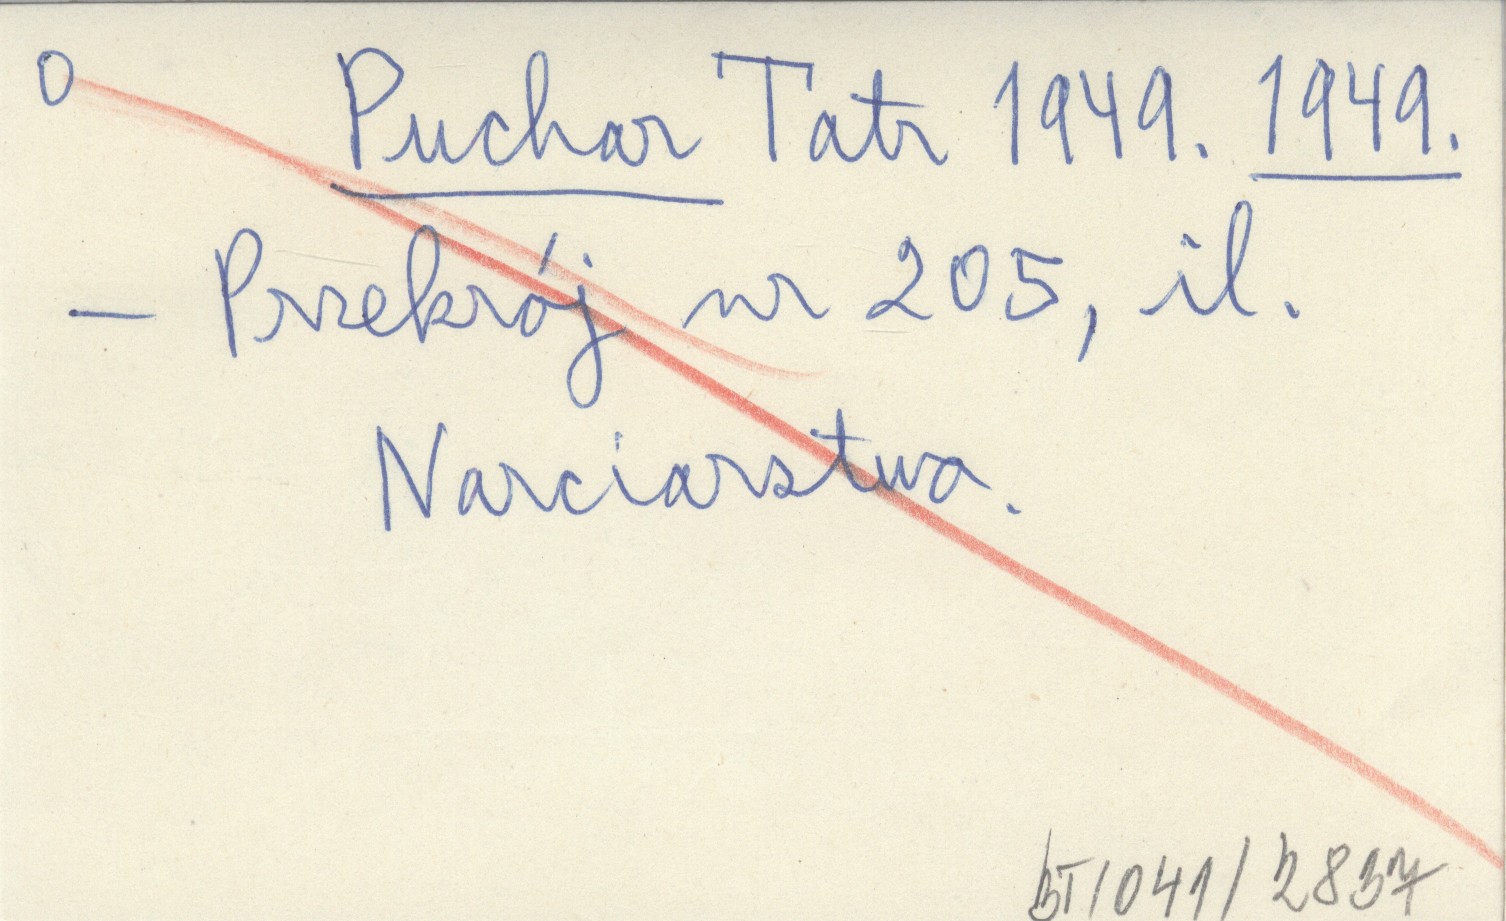 O Puchar Tatr 1949. 1949.
— Przekrój nr 205, il.
Narciarstwo.
BT/041/2837